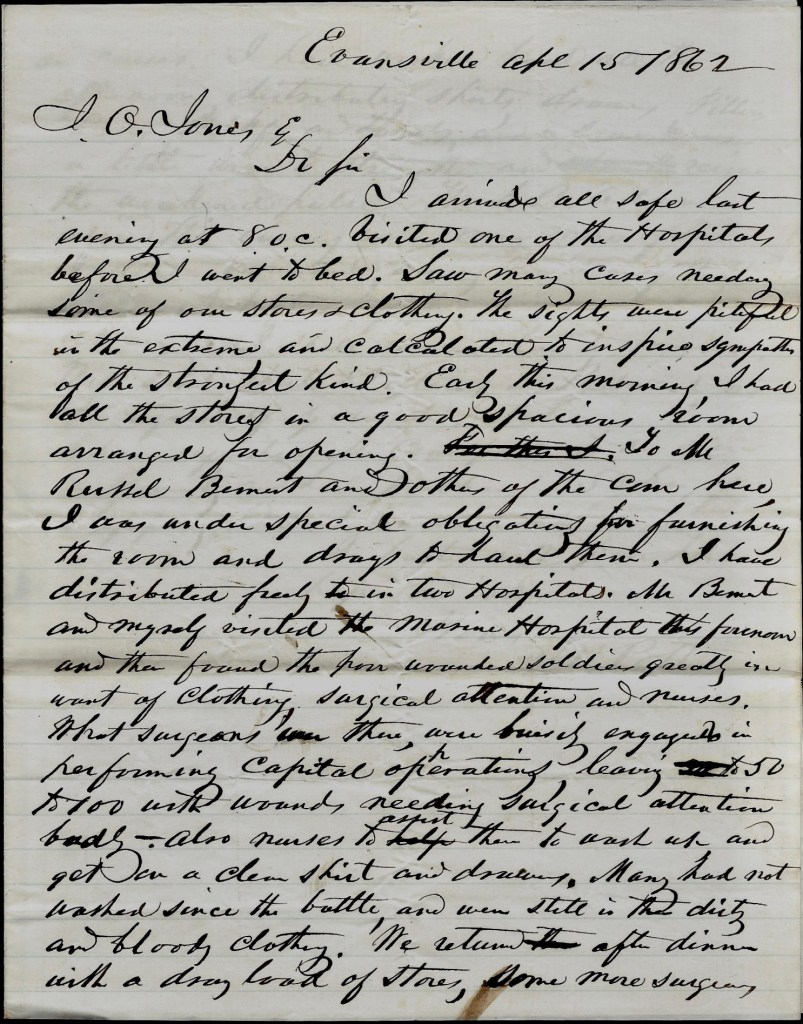 Evansville Apl 15 1862
J. O. Jones
Dr Sir
I arrived all safe last
evening at 8 o.c. Visited one of the Hospitals
before I went to bed. Saw many cases needing
some of our stores & clothing. The sights were pitiful
in the extreme and calculated to inspire sympathy
of the strongest kind. Early this morning I had
all the stores in a good spacious room
arranged for opening. For this I. To Mr
Russel Bement and others of the com here,
I was under special obligations for furnishing
the room and drays to haul them. I have
distributed freely to in two Hospitals. Mr Bement
and myself visited the Marine Hospital this forenoon
and then found the poor wounded soldiers greatly in
want of clothing, surgical attention and nurses.
What surgeons were there, were busily engaged in
performing capital operations, leaving to 50
to 100 with wounds needing surgical attention
badly – also nurses to help assist them to wash up and
get on a clean shirt and drawers. Many had not
washed since the battle, and were still in their dirty
and bloody clothing. We return after dinner
with a dray load of stores, some more surgeons